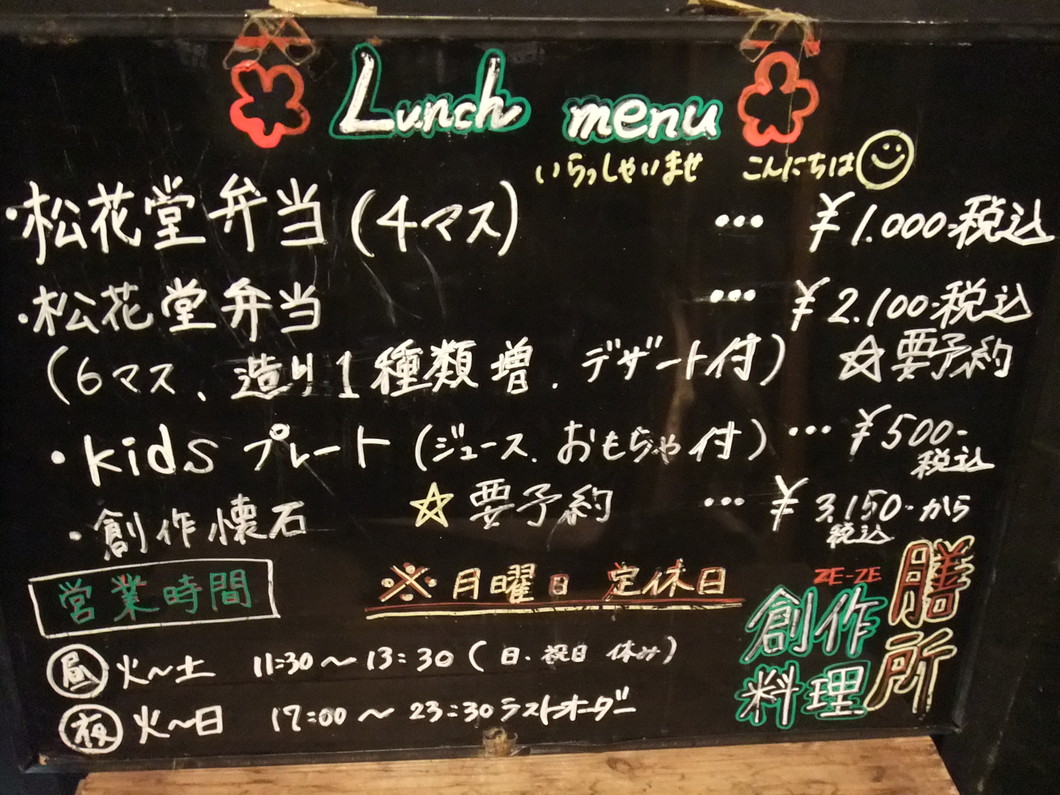 Lunch menu
いらっしゃいませ こんにちは
・松花堂弁当(4マス) … ¥1.000-税込
・松花堂弁当 … ¥2.100-税込
(6マス、造り1種類増、デザート付) ☆要予約
・kids プレート (ジュース、おもちゃ付) … ¥500-
税込
・創作懐石 ☆要予約 … ¥3,150-から
税込
営業時間
※月曜日 定休日
昼 火〜土 11:30〜13:30 (日、祝日 休み)
夜 火〜日 17:00〜23:30ラストオーダー
ZE-ZE
膳所
創作
料理